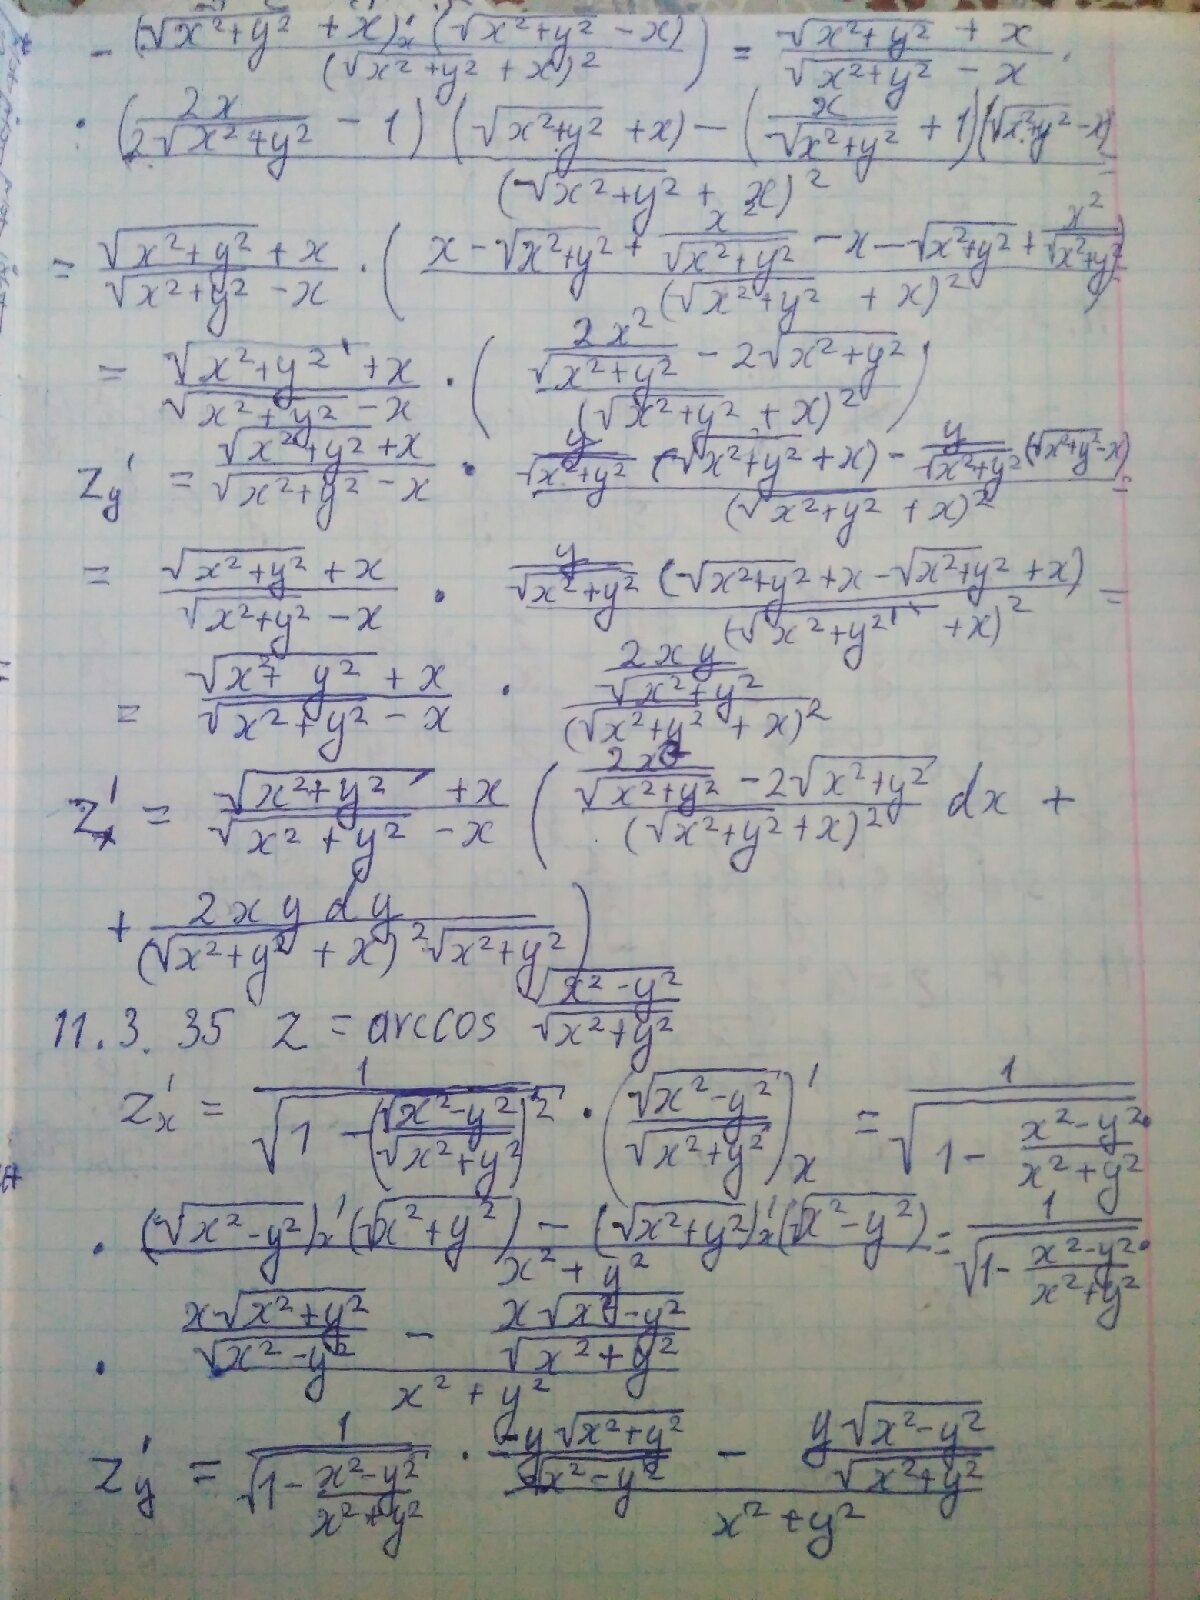 - (√(x²+y²) + x)'ₓ (√(x²+y²) - x) / (√(x²+y²) + x)² ) = (√(x²+y²) + x)/(√(x²+y²) - x) ·
· ((2x/(2√(x²+y²)) - 1)(√(x²+y²) + x) - (x/√(x²+y²) + 1)(√(x²+y²) - x)) / (√(x²+y²) + x)² =
= (√(x²+y²) + x)/(√(x²+y²) - x) · ((x - √(x²+y²) + x²/√(x²+y²) - x - √(x²+y²) + x²/√(x²+y²)) / (√(x²+y²) + x)²) =
= (√(x²+y²) + x)/(√(x²+y²) - x) · ((2x²/√(x²+y²) - 2√(x²+y²)) / (√(x²+y²) + x)²)
z'_y = (√(x²+y²) + x)/(√(x²+y²) - x) · (y/√(x²+y²) (√(x²+y²) + x) - y/√(x²+y²) (√(x²+y²) - x)) / (√(x²+y²) + x)² =
= (√(x²+y²) + x)/(√(x²+y²) - x) · (y/√(x²+y²) (√(x²+y²) + x - √(x²+y²) + x)) / (√(x²+y²) + x)² =
= (√(x²+y²) + x)/(√(x²+y²) - x) · (2xy/√(x²+y²)) / (√(x²+y²) + x)²
z' = (√(x²+y²) + x)/(√(x²+y²) - x) ( (2x²/√(x²+y²) - 2√(x²+y²)) / (√(x²+y²) + x)² dx +
+ 2xy dy / ((√(x²+y²) + x)² √(x²+y²)) )
11.3.35 z = arccos √(x²-y²)/√(x²+y²)
z'ₓ = 1/√(1 - (√(x²-y²)/√(x²+y²))²) · (√(x²-y²)/√(x²+y²))'ₓ = 1/√(1 - (x²-y²)/(x²+y²)) ·
· ((√(x²-y²))'ₓ (√(x²+y²)) - (√(x²+y²))'ₓ (√(x²-y²))) / (x²+y²) = 1/√(1 - (x²-y²)/(x²+y²)) ·
· (x√(x²+y²)/√(x²-y²) - x√(x²-y²)/√(x²+y²)) / (x²+y²)
z'_y = 1/√(1 - (x²-y²)/(x²+y²)) · (-y√(x²+y²)/√(x²-y²) - y√(x²-y²)/√(x²+y²)) / (x²+y²)